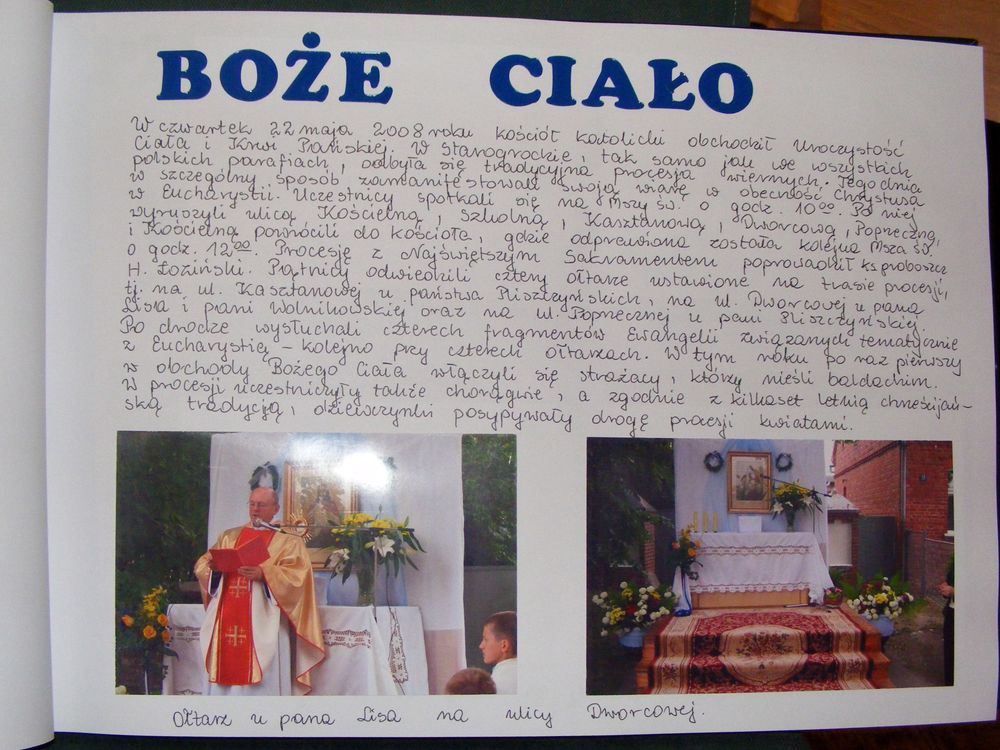 BOŻE CIAŁO
W czwartek 22 maja 2008 roku kościół katolicki obchodził Uroczystość
Ciała i Krwi Pańskiej. W Starogrodzie, tak samo jak we wszystkich
polskich parafiach, odbyła się tradycyjna procesja wiernych. Tego dnia
w szczególny sposób zamanifestowali swoją wiarę w obecność Chrystusa
w Eucharystii. Uczestnicy spotkali się na Mszy św. o godz. 10⁰⁰. Po niej
wyruszyli ulicą Kościelną, Szkolną, Kasztanową, Dworcową, Poprzeczną,
i Kościelną powrócili do kościoła, gdzie odprawiona została kolejna Msza św.
o godz. 12⁰⁰. Procesję z Najświętszym Sakramentem poprowadził ks. proboszcz
H. Łoziński. Piątnicy odwiedzili cztery ołtarze ustawione na trasie procesji,
tj. na ul. Kasztanowej u państwa Pliszczyńskich, na ul. Dworcowej u pana
Lisa i pani Wolnikowskiej oraz na ul. Poprzecznej u pani Pliszczyńskiej.
Po drodze wysłuchali czterech fragmentów Ewangelii związanych tematycznie
z Eucharystią – kolejno przy czterech ołtarzach. W tym roku po raz pierwszy
w obchody Bożego Ciała włączyli się strażacy, którzy nieśli baldachim.
W procesji uczestniczyły także chorągwie, a zgodnie z kilkaset letnią chrześcijań-
ską tradycją, dziewczynki posypywały drogę procesji kwiatami.
Ołtarz u pana Lisa na ulicy Dworcowej.